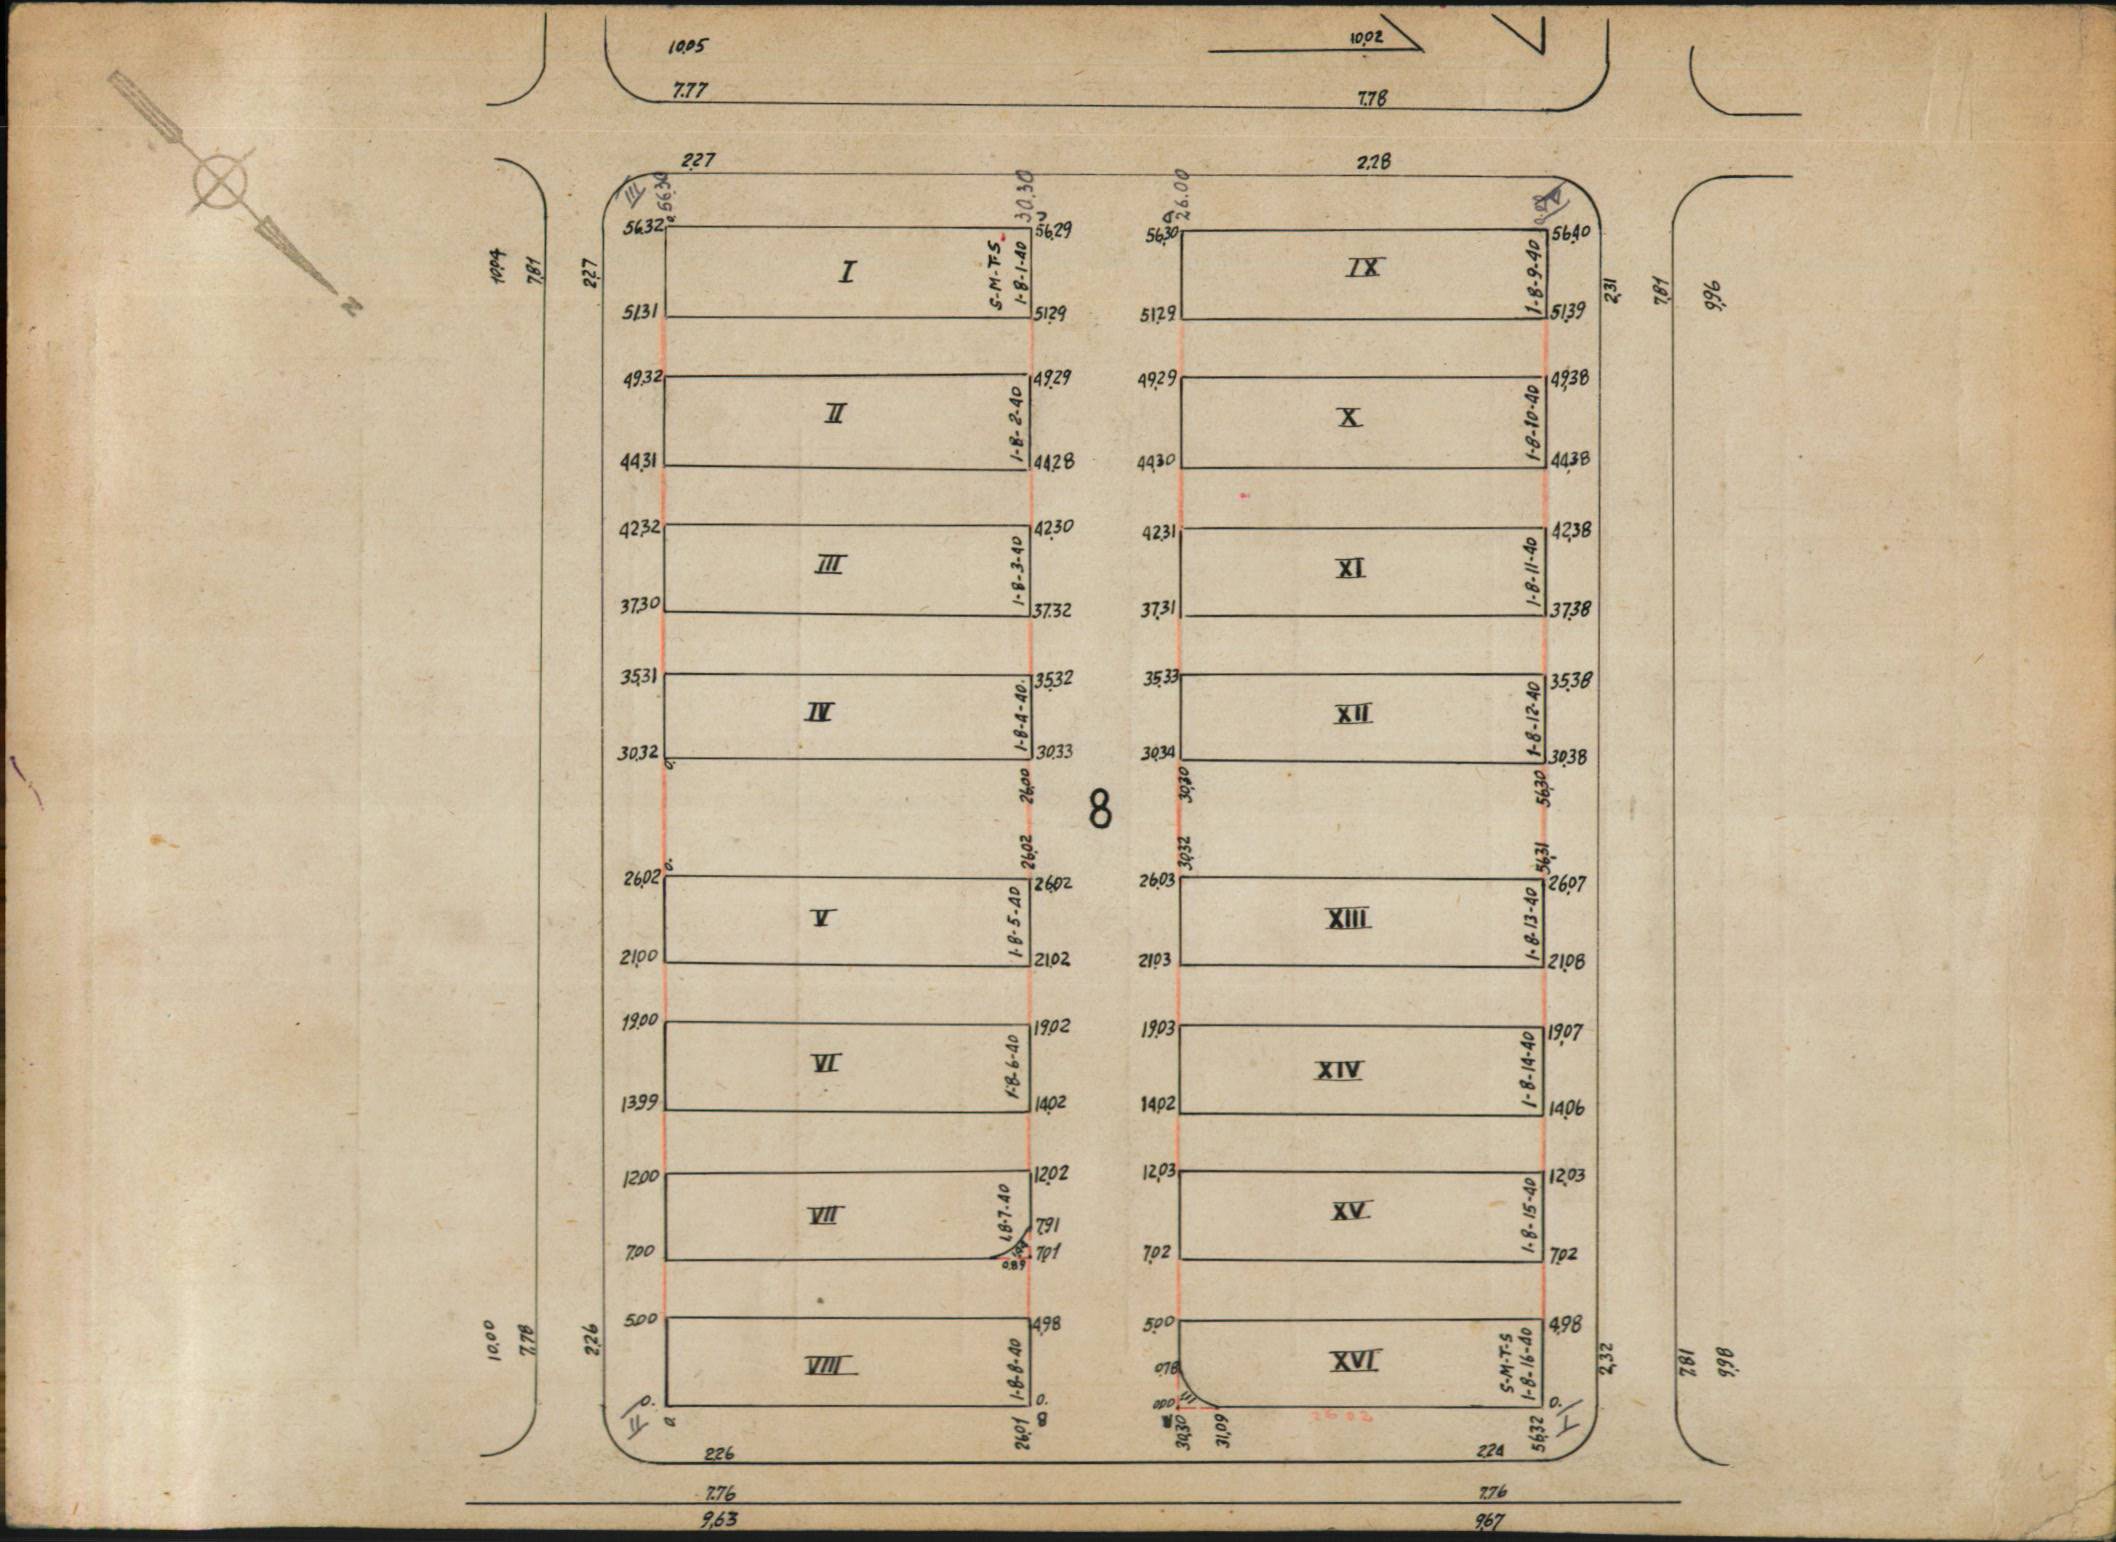 10,05
10,02
7.77
7.78
2,27
2,28
III
56.30
30.30
26.00
N
56,32
56,29
56,30
56,40
I
S-M-T-S
1-8-1-40
IX
1-8-9-40
51,31
51,29
51,29
51,39
10,04
7,81
2,27
2,31
7,81
9,96
49,32
49,29
49,29
49,38
II
1-8-2-40
X
1-8-10-40
44,31
44,28
44,30
44,38
42,32
42,30
42,31
42,38
III
1-8-3-40
XI
1-8-11-40
37,30
37,32
37,31
37,38
35,31
35,32
35,33
35,38
IV
1-8-4-40.
XII
1-8-12-40
30,32
30,33
30,34
30,38
0.
26,00
30,30
56,30
8
0.
26,02
30,32
56,31
26,02
26,02
26,03
26,07
V
1-8-5-40
XIII
1-8-13-40
21,00
21,02
21,03
21,08
19,00
19,02
19,03
19,07
VI
1-8-6-40
XIV
1-8-14-40
13,99
14,02
14,02
14,06
12,00
12,02
12,03
12,03
VII
1-8-7-40
7,91
XV
1-8-15-40
7,00
7,01
7,02
7,02
0,89
5,00
4,98
5,00
4,98
VIII
1-8-8-40
0,78
XVI
S-M-T-S
1-8-16-40
10,00
7,78
2,26
2,32
7,81
9,98
0.
0.
0,00
0.
II
0.
26,01
B
A
30,30
31,09
26 02
56,32
I
2,26
2,24
7,76
7,76
9,63
9,67